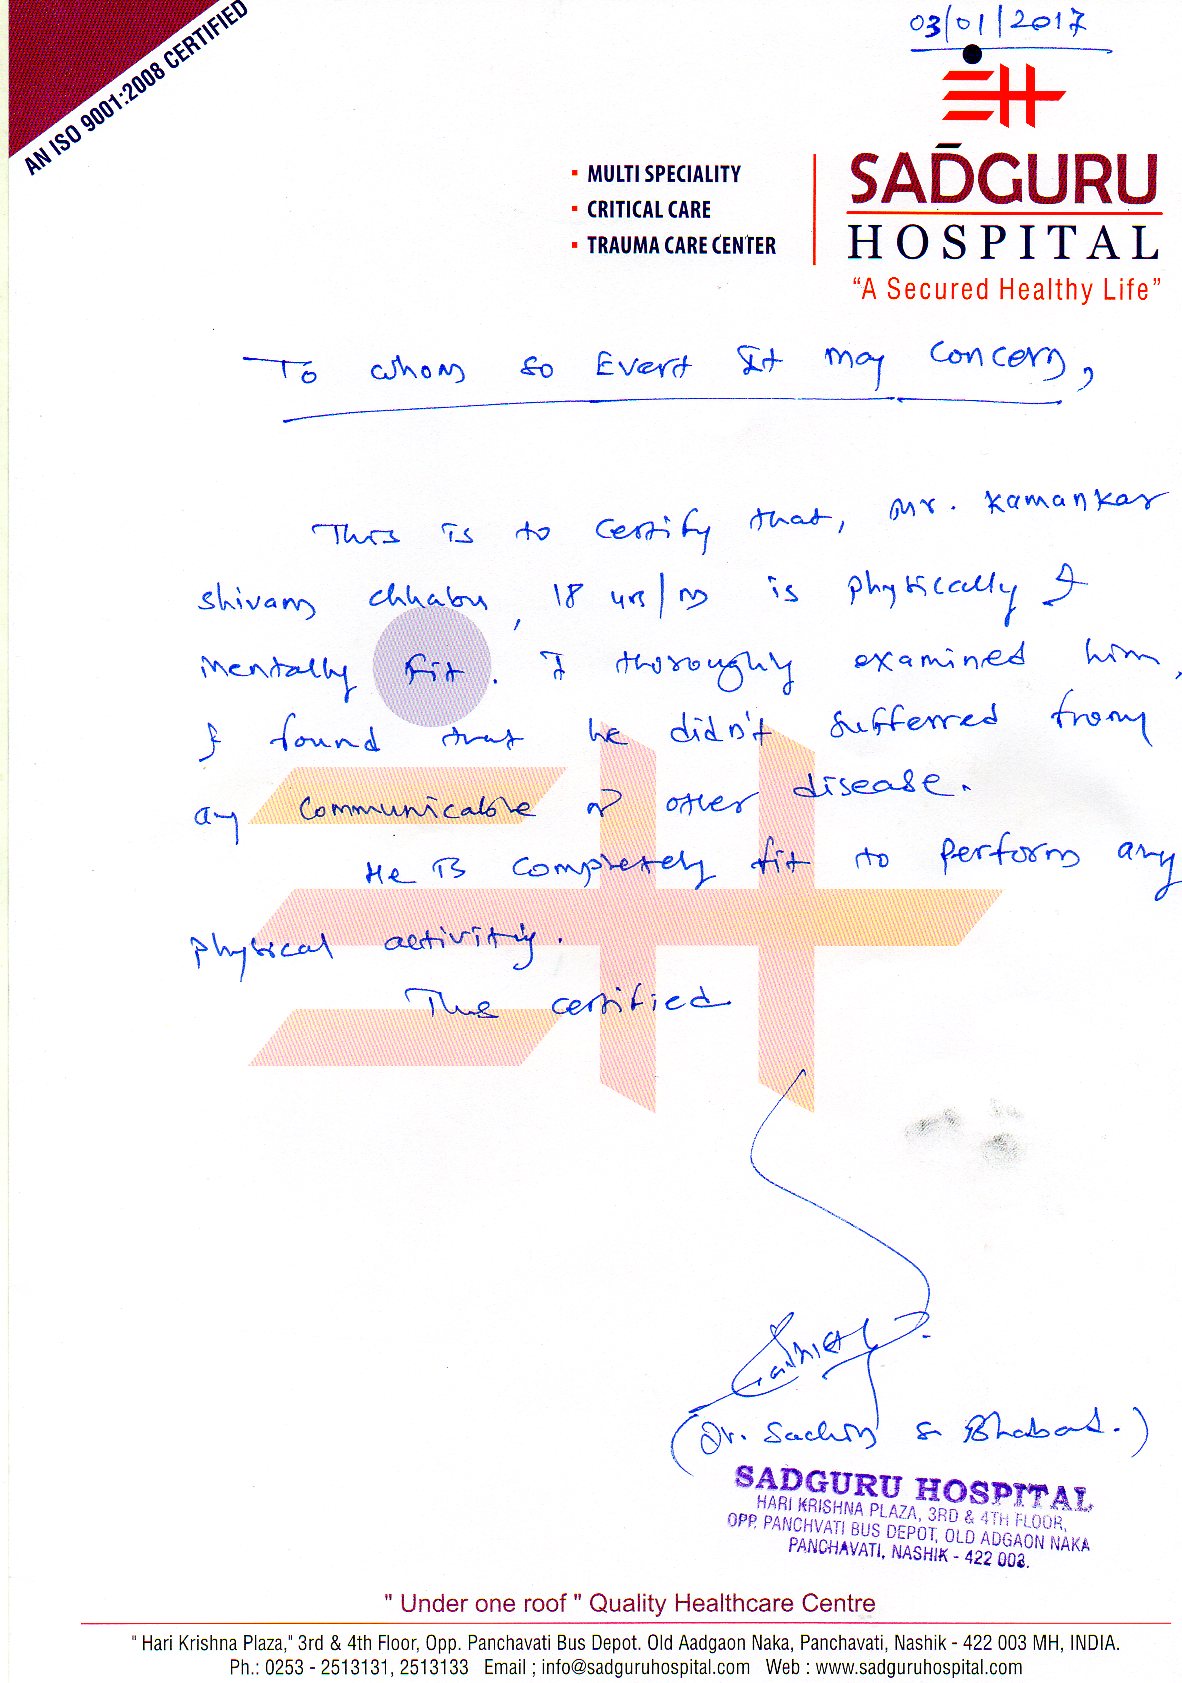 03/01/2017
AN ISO 9001:2008 CERTIFIED
▪ MULTI SPECIALITY
▪ CRITICAL CARE
▪ TRAUMA CARE CENTER
SADGURU
HOSPITAL
“A Secured Healthy Life”
To whom so Evert It may concern,
This is to certify that, Mr. Kamankar
shivam chhabu, 18 yrs/m is physically &
mentally fit. I thoroughly examined him,
& found that he didn't sufferred from
any communicable or other disease.
He is completely fit to perform any
physical activity.
Thus certified
(Dr. Sachin S. Bhabad.)
SADGURU HOSPITAL
HARI KRISHNA PLAZA, 3RD & 4TH FLOOR,
OPP. PANCHVATI BUS DEPOT, OLD ADGAON NAKA
PANCHAVATI, NASHIK - 422 003.
" Under one roof " Quality Healthcare Centre
" Hari Krishna Plaza," 3rd & 4th Floor, Opp. Panchavati Bus Depot. Old Aadgaon Naka, Panchavati, Nashik - 422 003 MH, INDIA.
Ph.: 0253 - 2513131, 2513133 Email ; info@sadguruhospital.com Web : www.sadguruhospital.com